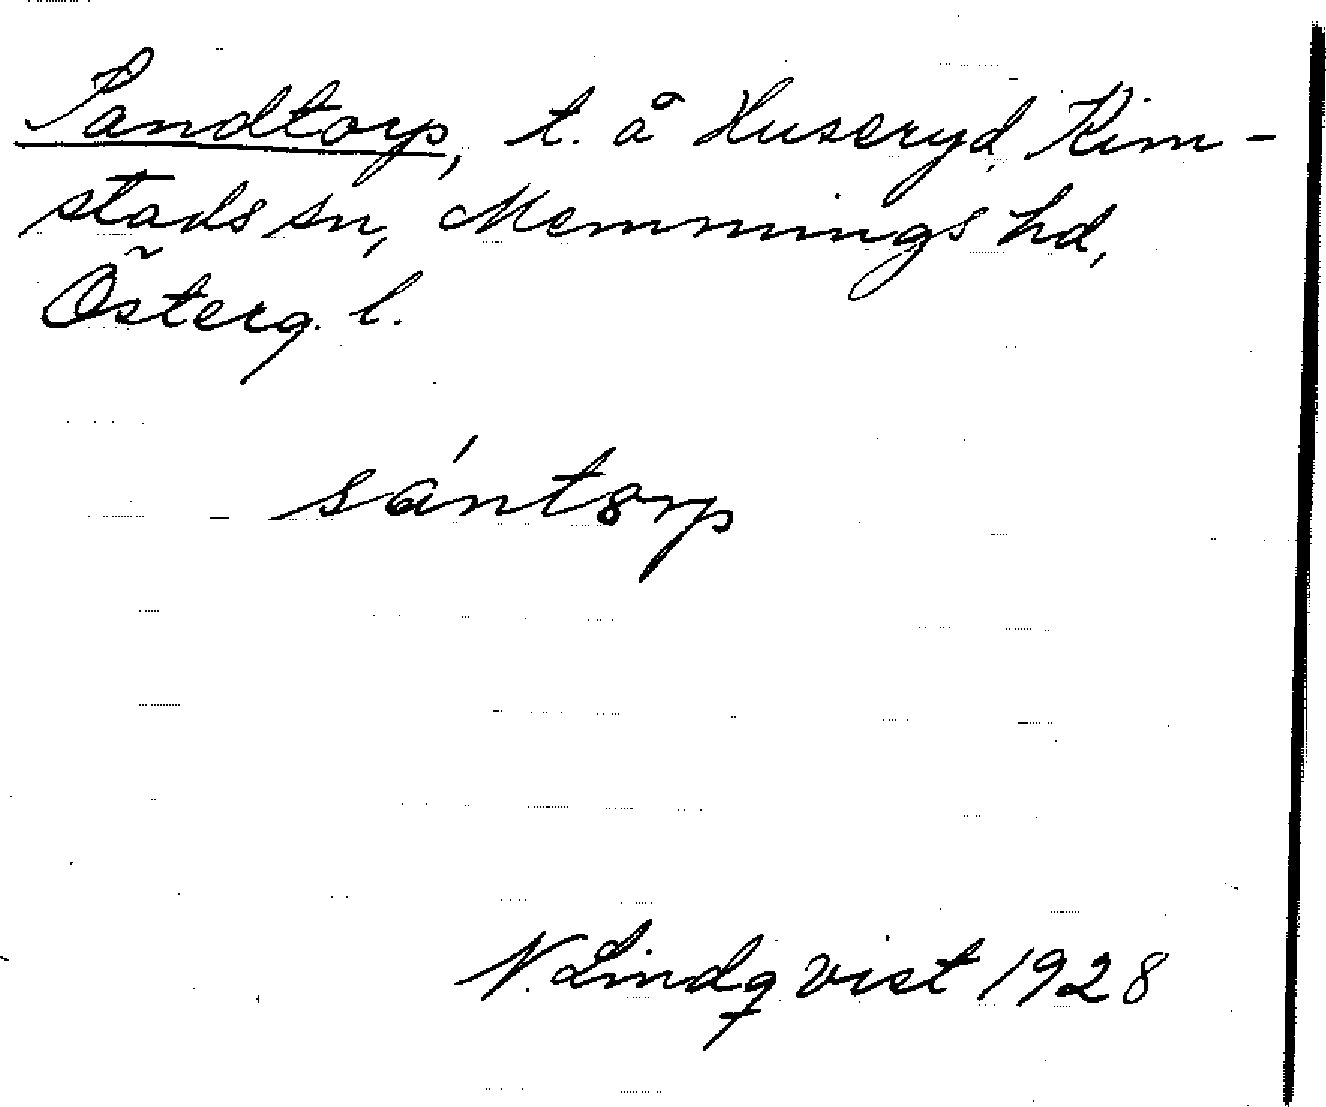 Sandtorp, t. å Huseryd, Kim-
stads sn, Memmings hd,
Österg. l.
sántorp
N. Lindqvist 1928